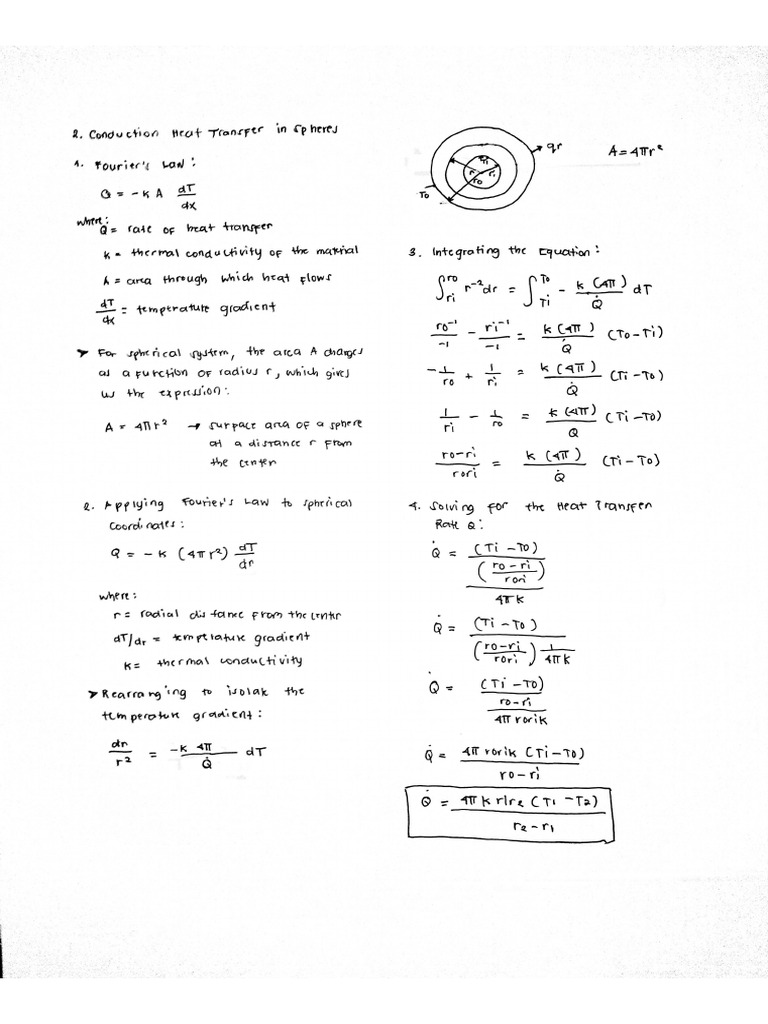 2. Conduction Heat Transfer in Spheres
1. Fourier's Law:
Q = -K A dT/dx
where:
Q = rate of heat transfer
k = thermal conductivity of the material
A = area through which heat flows
dT/dx = temperature gradient
➤ For spherical system, the area A changes
as a function of radius r, which gives
us the expression:
A = 4πr² → surface area of a sphere
at a distance r from
the center
2. Applying Fourier's Law to spherical
coordinates:
Q = -K (4πr²) dT/dr
where:
r = radial distance from the center
dT/dr = temperature gradient
k = thermal conductivity
➤ Rearranging to isolate the
temperature gradient:
dr/r² = -K 4π/Q̇ dT
qr
A = 4πr²
r
ri
ro
To
3. Integrating the Equation:
∫ri^ro r⁻²dr = ∫Ti^To - k(4π)/Q̇ dT
ro⁻¹/-1 - ri⁻¹/-1 = k(4π)/Q̇ (To-Ti)
-1/ro + 1/ri = k(4π)/Q̇ (Ti-To)
1/ri - 1/ro = k(4π)/Q (Ti-To)
ro-ri/rori = k(4π)/Q̇ (Ti-To)
4. Solving for the Heat Transfer
Rate Q:
Q̇ = (Ti-To)/((ro-ri/rori)/4πk)
Q̇ = (Ti-To)/((ro-ri/rori) 1/4πk)
Q̇ = (Ti-To)/(ro-ri/4πrorik)
Q̇ = 4πrorik(Ti-To)/ro-ri
Q̇ = 4πkr1r2(T1-T2)/r2-r1